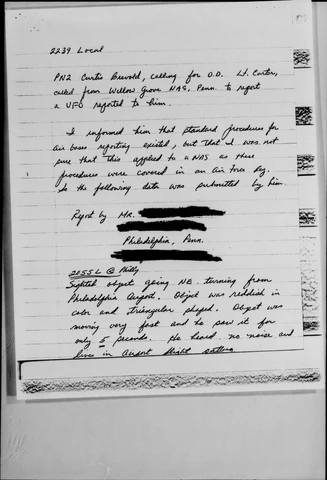 2239 Local
PN2 Curtis Griswold, calling for O.D. Lt. Carter,
called from Willow Grove NAS, Penn. to report
a UFO reported to him.
I informed him that standard procedures for
air bases reporting existed, but that I was not
sure that this applied to a NAS as these
procedures were covered in an Air Force Reg.
So the following data was submitted by him.
Report by MR.
Philadelphia, Penn.
2055L @ Philly
Sighted object going NE. turning from
Philadelphia Airport. Object was reddish in
color and triangular shaped. Object was
moving very fast and he saw it for
only 5 seconds. He heard no noise and
lives in Airport flight pattern